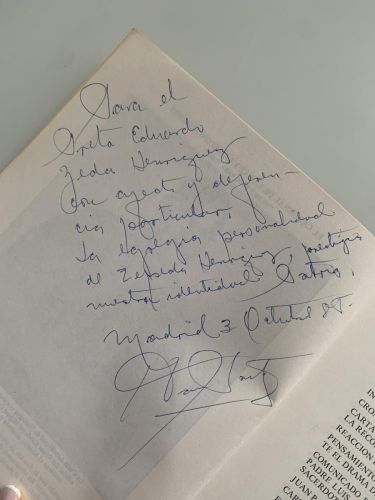 Para el
Poeta Eduardo
Zeda Henriquez
con afecto y deferen-
cia particular,
la egregia personalidad
de Zepeda Henriquez, prestigia
nuestra identidad Patria,
Madrid 3 Octubre 85-
IN
CRO
CARTA
LA RECO
REACCION
PENSAMIENT
TE EL DRAMA D
COMUNICADO
PADRE LU
SACERDOS
JUAN
CAR
ES